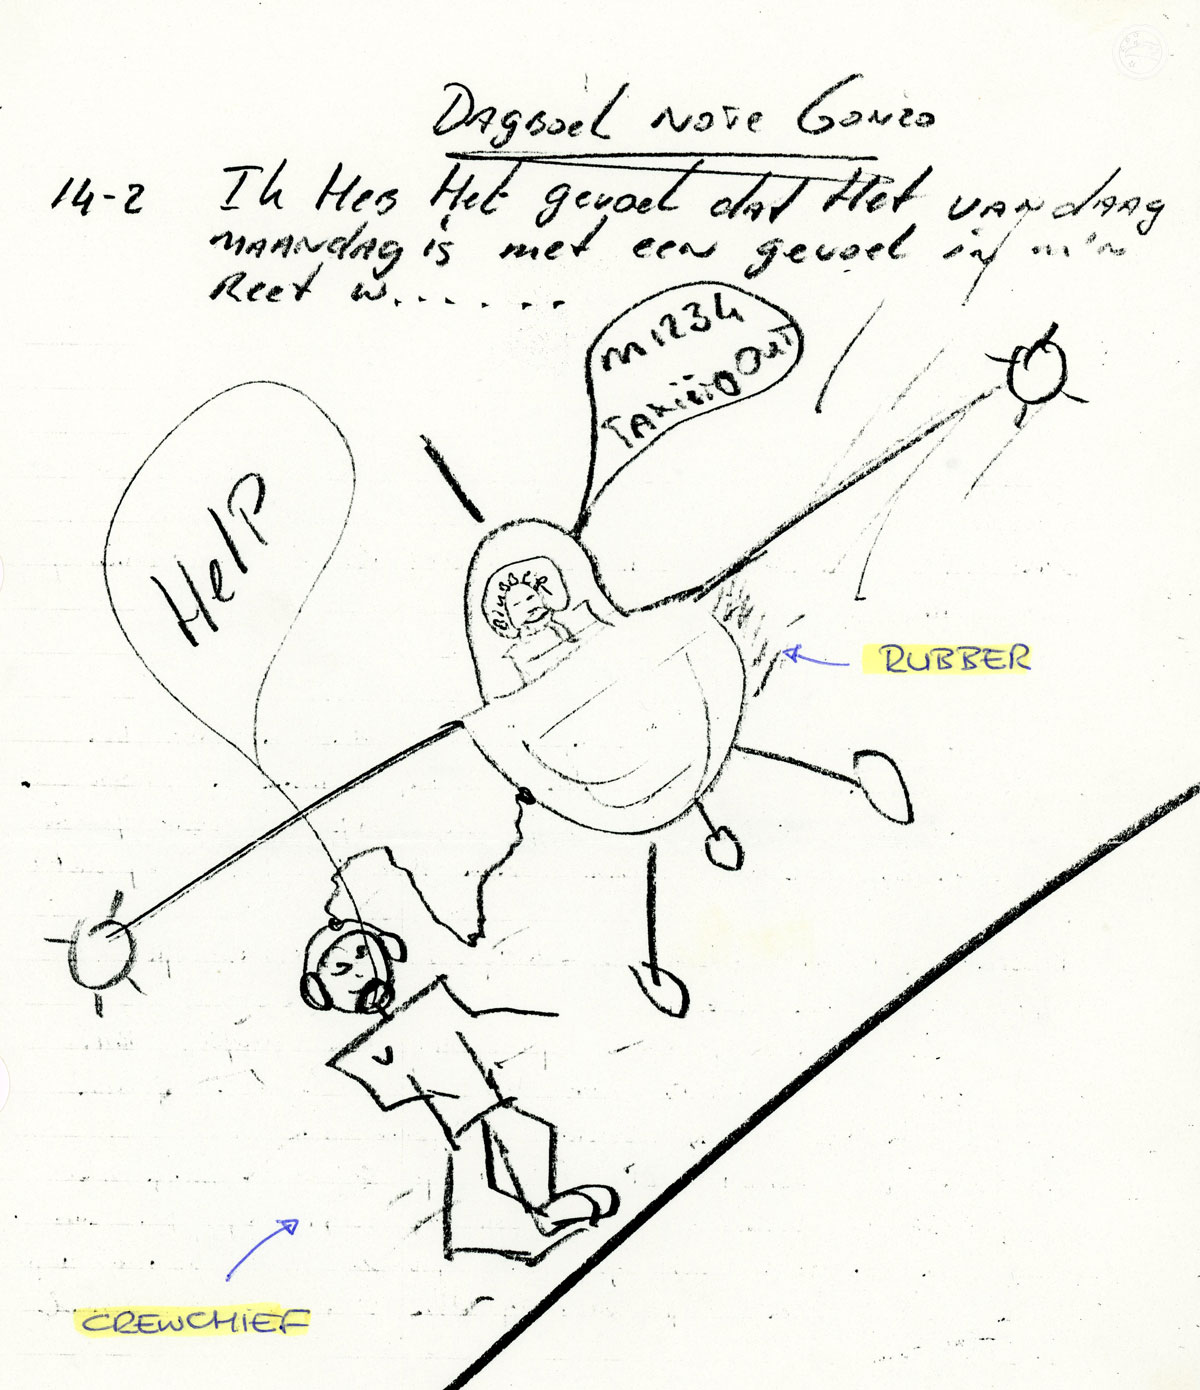 Dagboek note Gonzo
14-2 Ik Heb Het gevoel dat Het vandaag
maandag is met een gevoel in m'n
Reet w......
m1234
Taxiiing Out
HelP
Bingoer
RUBBER
CREWCHIEF